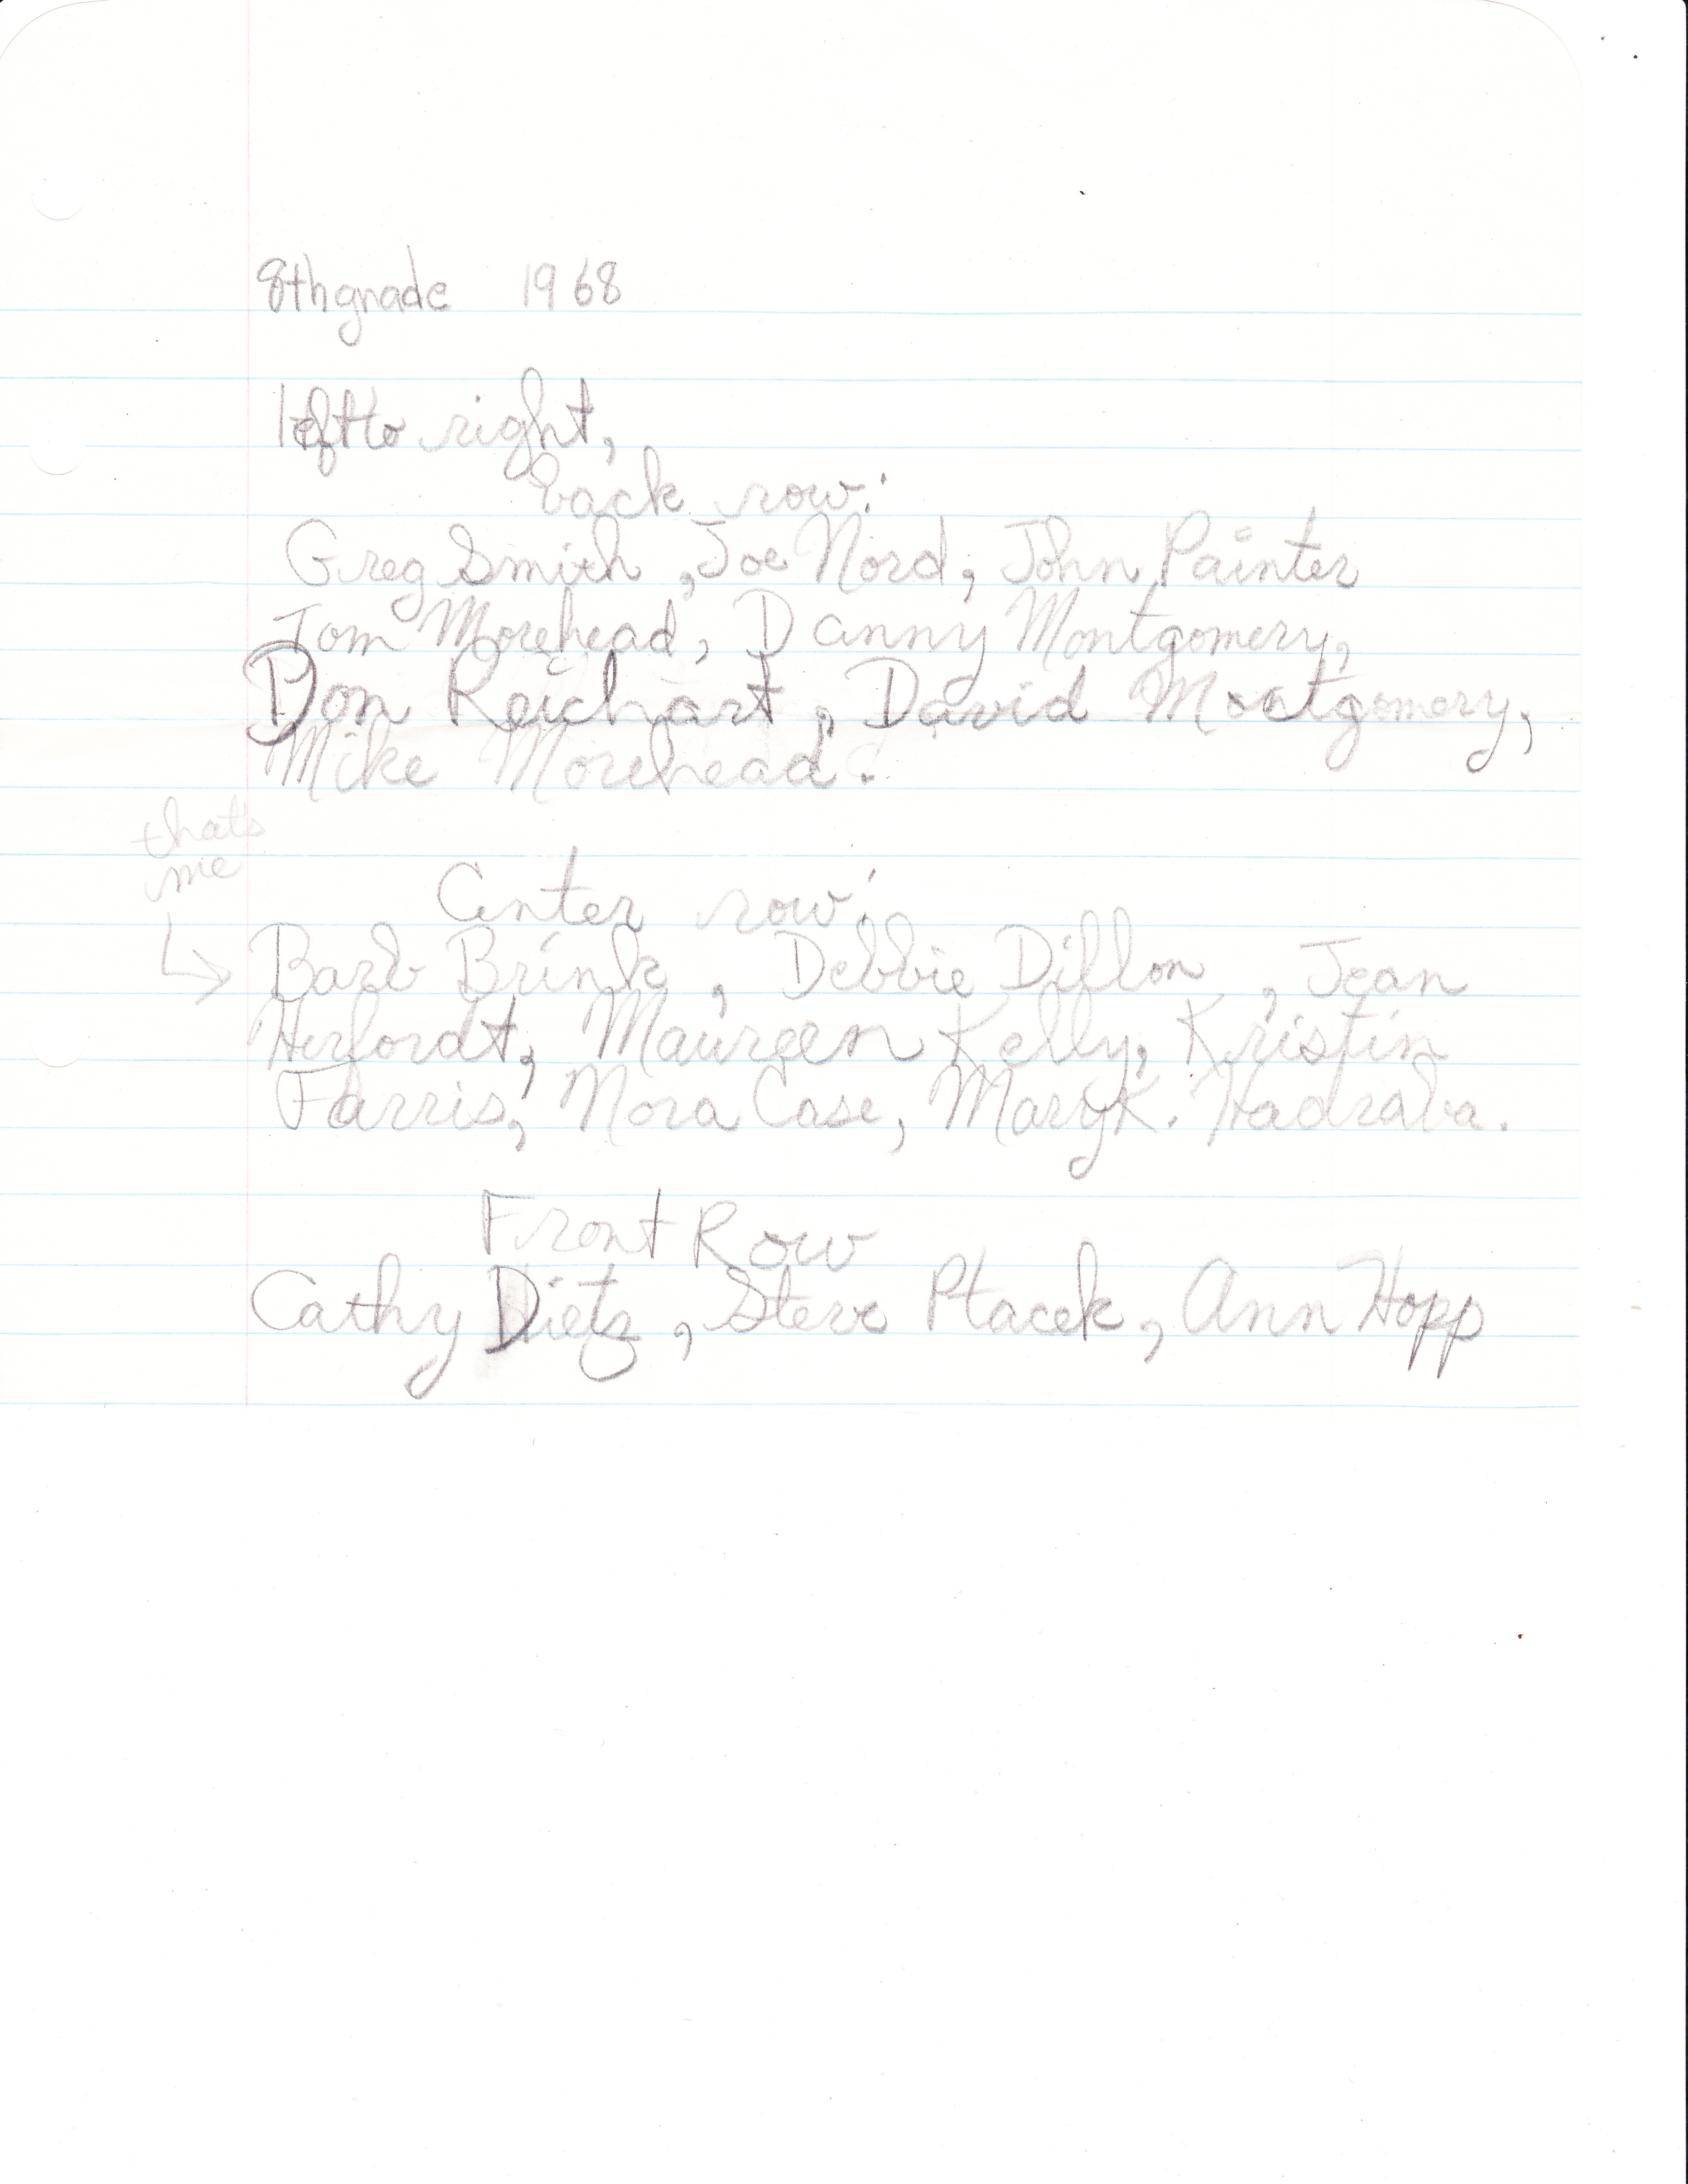 8th grade 1968
left to right,
back row:
Greg Smith, Joe Nord, John Painter
Tom Morehead, Danny Montgomery,
Don Reichart, David Montgomery,
Mike Morehead.
that's
me
Center row:
Barb Brink, Debbie Dillon, Jean
Herfordt, Maureen Kelly, Kristin
Farris, Nora Case, Mary K. Hadraba.
Front Row
Cathy Dietz, Steve Ptacek, Ann Hopp